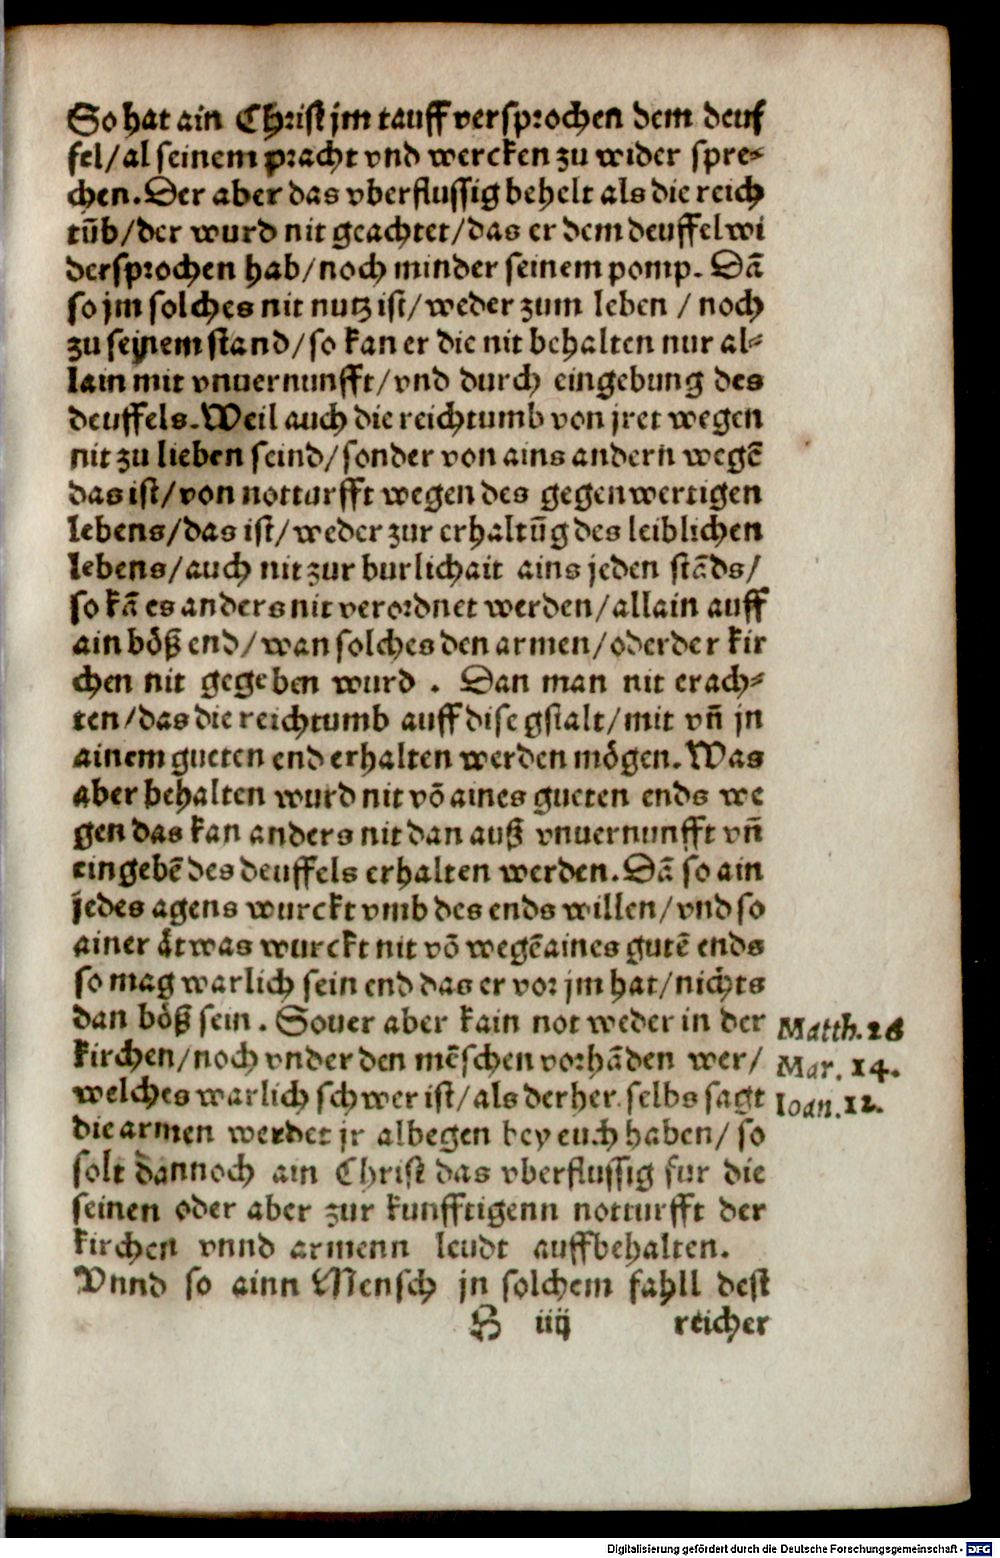 So hat ain Christ jm tauff versprochen dem deuf
fel/al seinem pracht vnd wercken zu wider spre⸗
chen. Der aber das vberflussig behelt als die reich
tūb/der wurd nit geachtet/das er dem deuffel wi
dersprochen hab/noch minder seinem pomp. Dā
so jm solches nit nutz ist/weder zum leben / noch
zu seinem stand/so kan er die nit behalten nur al⸗
lain mit vnuernunfft/vnd durch eingebung des
deuffels. Weil auch die reichtumb von jret wegen
nit zu lieben seind/sonder von ains andern wegē
das ist/von notturfft wegen des gegenwertigen
lebens/das ist/weder zur erhaltūg des leiblichen
lebens/auch nit zur burlichait ains jeden stāds/
so kā es anders nit verordnet werden/allain auff
ain böß end/wan solches den armen/oder der kir
chen nit gegeben wurd . Dan man nit erach⸗
ten/das die reichtumb auff dise gstalt/mit vn̄ jn
ainem gueten end erhalten werden mögen. Was
aber behalten wurd nit vō aines gueten ends we
gen das kan anders nit dan auß vnuernunfft vn̄
eingebē des deuffels erhalten werden. Dā so ain
jedes agens wurckt vmb des ends willen/vnd so
ainer åtwas wurckt nit vō wegē aines gutē ends
so mag warlich sein end das er vor jm hat/nichts
dan böß sein . Souer aber kain not weder in der
Matth. 26
kirchen/noch vnder den mēschen vorhāden wer/
Mar. 14.
welches warlich schwer ist/als der her. selbs sagt
Ioan. 12.
die armen werdet jr albegen bey euch haben/ so
solt dannoch ain Christ das vberflussig fur die
seinen oder aber zur kunfftigenn notturfft der
kirchen vnnd armenn leudt auffbehalten.
Vnnd so ainn Mensch jn solchem fahll dest
B iiij reicher
Digitalisierung gefördert durch die Deutsche Forschungsgemeinschaft - DFG